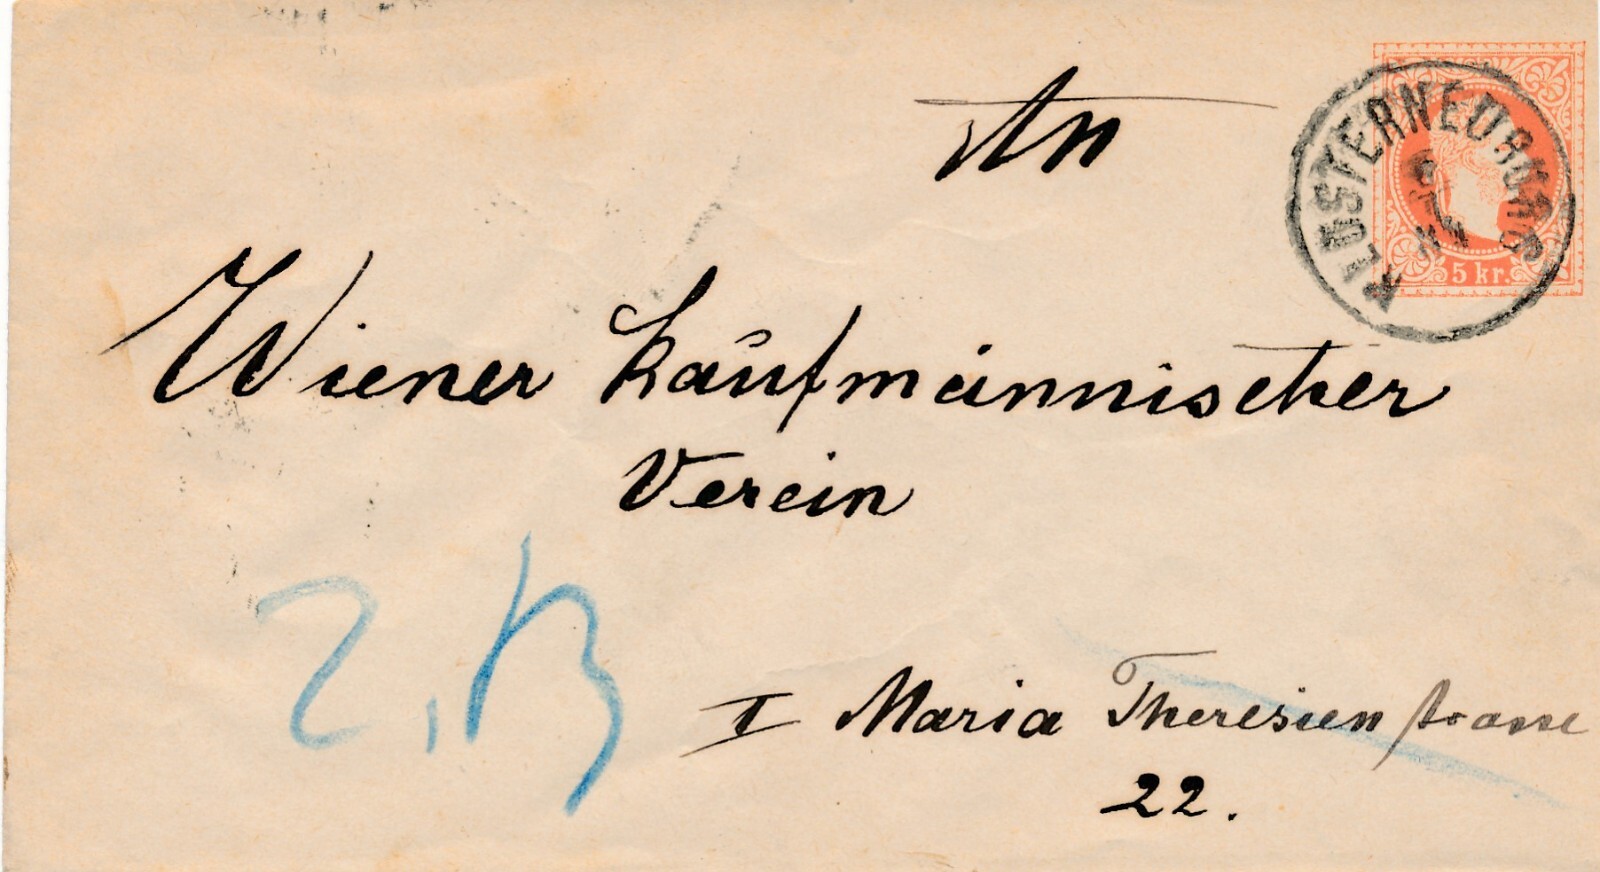 An
KLOSTERNEUBURG
5 kr.
Wiener kaufmännischer
Verein
I Maria Theresienstrasse
22.